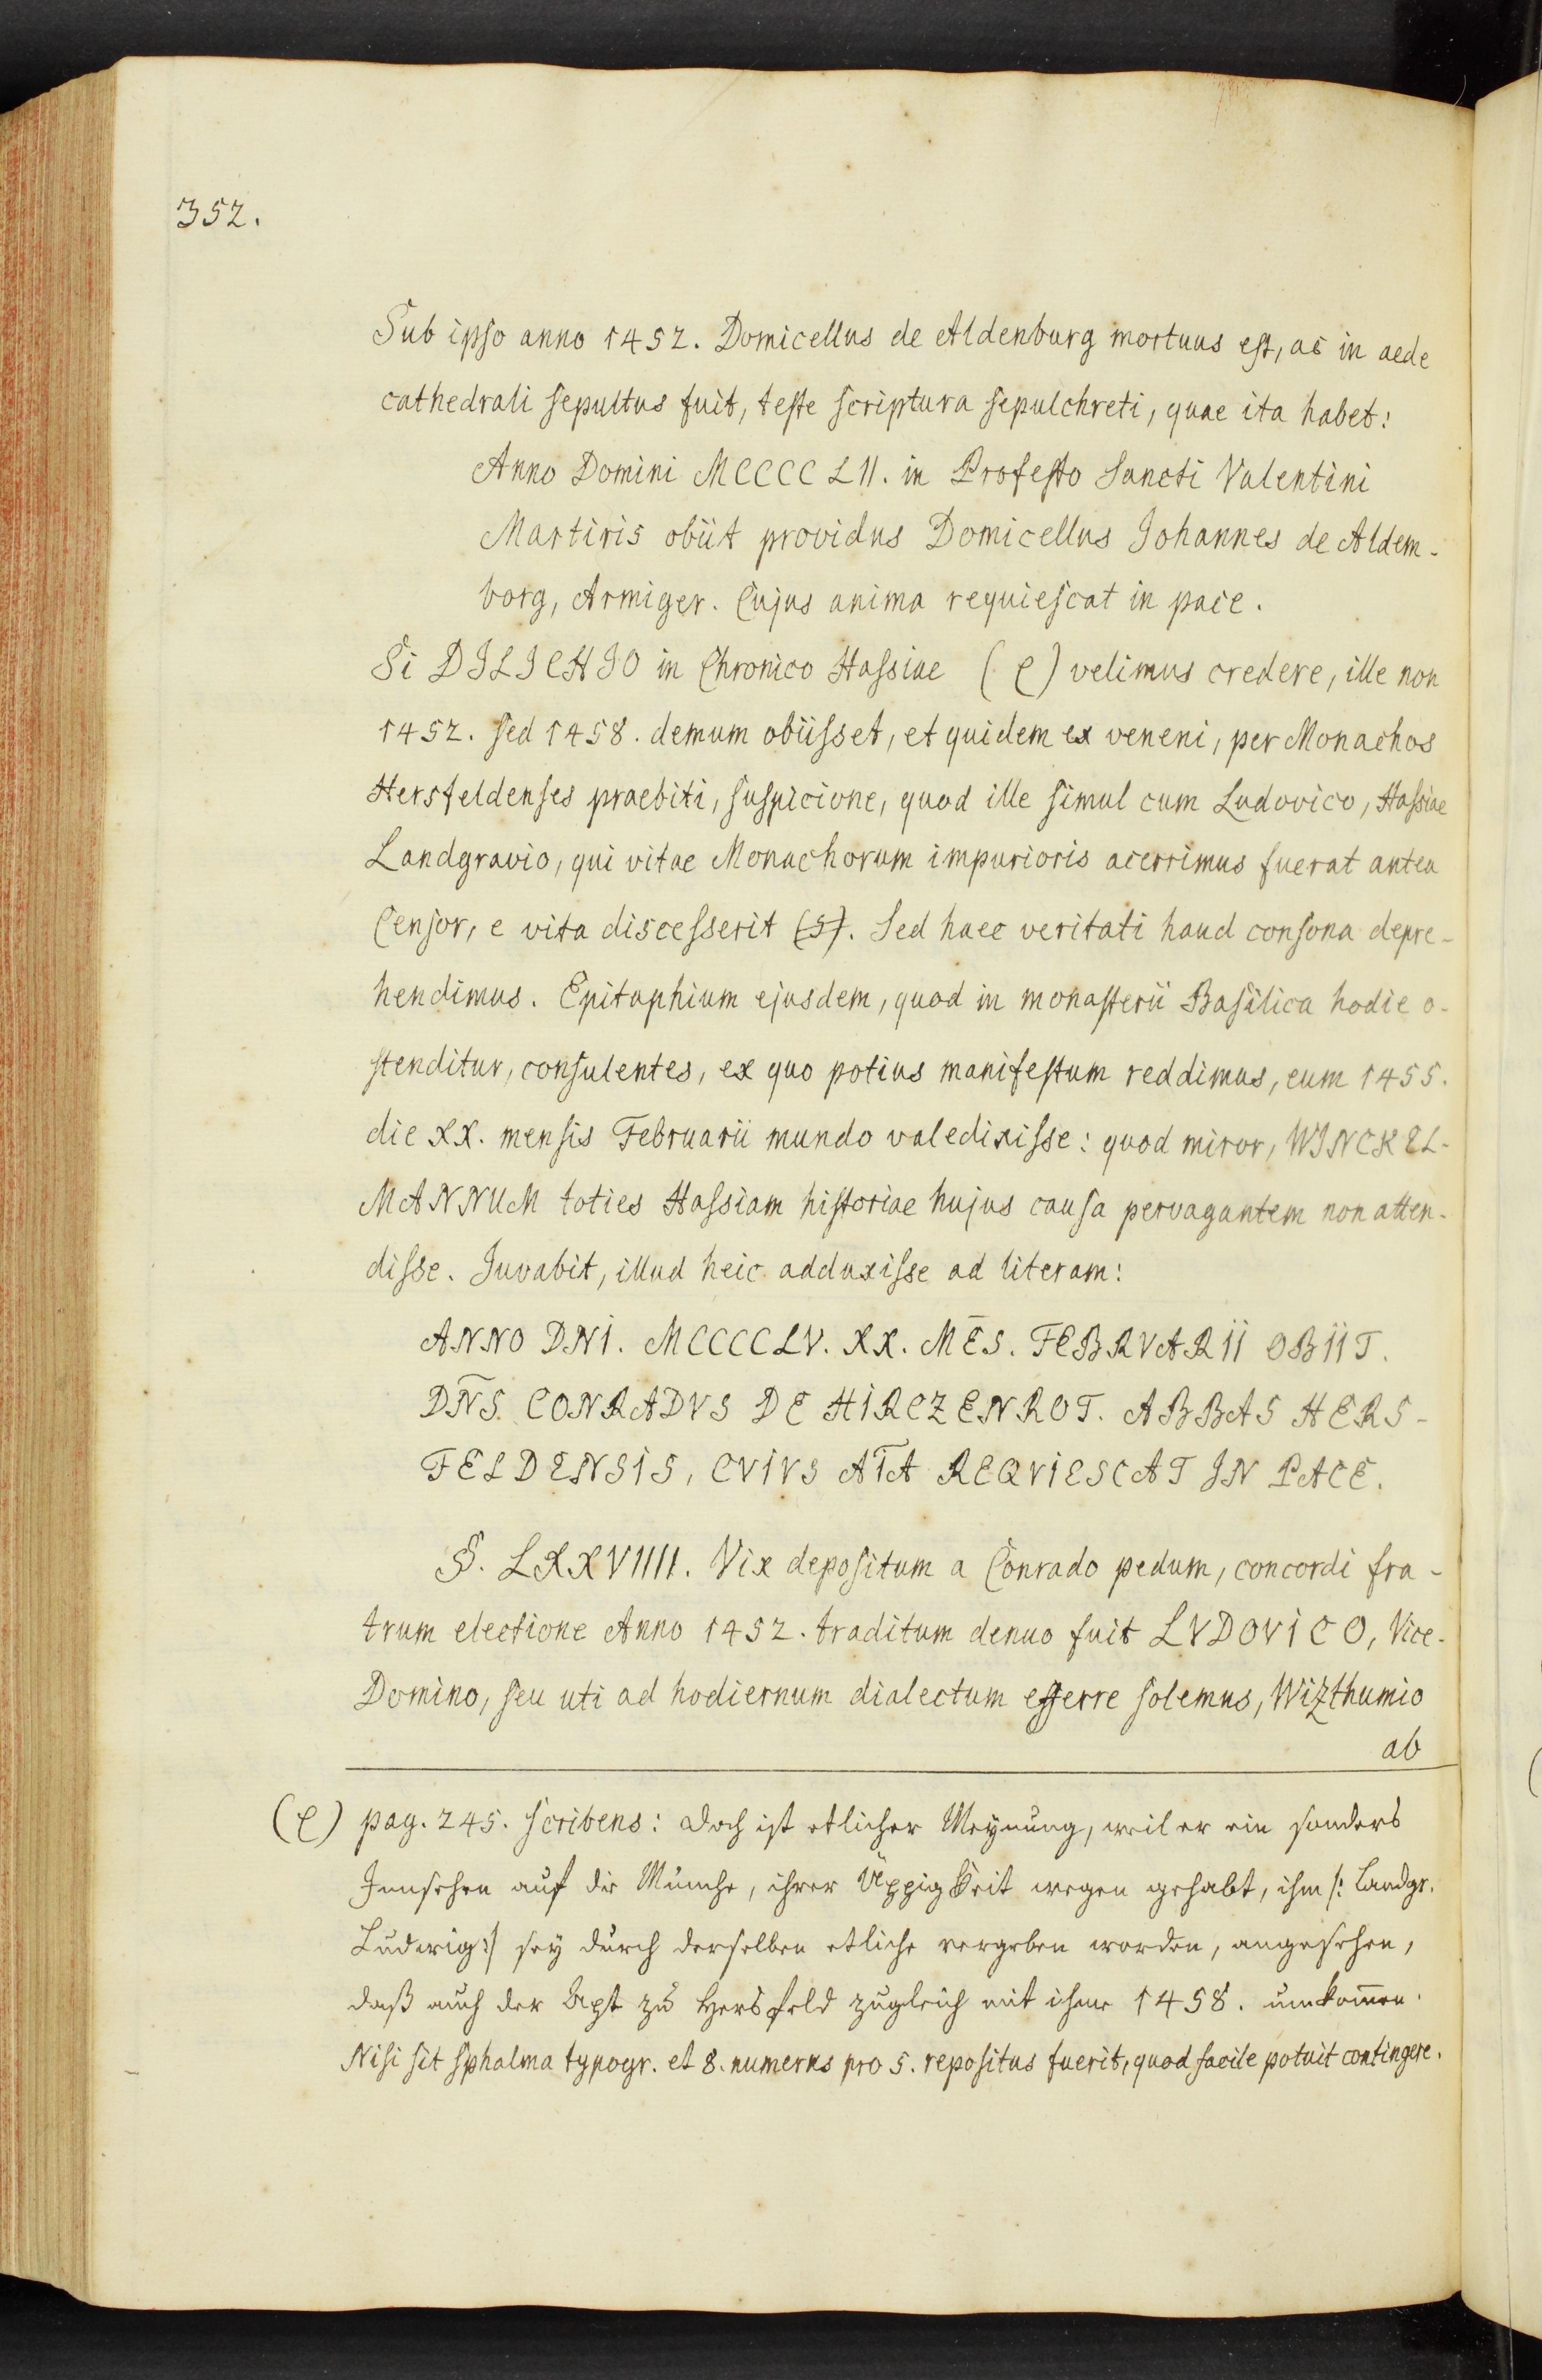 352.
Sub ipso anno 1452. Domicellus de Aldenburg mortuus est, ac in aede
cathedrali sepultus fuit, teste scriptura sepulchreti, quae ita habet:
Anno Domini MCCCC LII. in Profesto Sancti Valentini
Martiris obiit providus Domicellus Johannes de Aldem-
borg, Armiger. Cujus anima requiescat in pace.
Si DILICHIO in Chronico Hassiae (e) velimus credere, ille non
1452. sed 1458. demum obiisset, et quidem ex veneni, per Monachos
Hersfeldenses praebiti, suspicione, quod ille simul cum Ludovico, Hassiae
Landgravio, qui vitae Monachorum impurioris acerrimus fuerat antea
Censor, e vita discesserit (5). Sed haec veritati haud consona depre-
hendimus. Epitaphium ejusdem, quod in monasterii Basilica hodie o-
stenditur, consulentes, ex quo potius manifestum reddimus, eum 1455.
die XX. mensis Februarii mundo valedixisse: quod miror, WINCKEL-
MANNUM toties Hassiam historiae hujus causa pervagantem non atten-
disse. Juvabit, illud heic adduxisse ad literam:
ANNO DNI. MCCCCLV. XX. MĒS. FEBRVARII OBIIT.
DN̄S CONRADVS DE HIRCZENROT. ABBAS HERS-
FELDENSIS, CVIVS AĪA REQVIESCAT IN PACE.
§. LXXVIIII. Vix depositum a Conrado pedum, concordi fra-
trum electione Anno 1452. traditum denuo fuit LVDOVICO, Vice-
Domino, seu uti ad hodiernum dialectum efferre solemus, Wizthumio
ab
(e) pag. 245. scribens: Doch ist etlicher Meynung, weil er ein sonders
Innsehen auf die Münche, ihrer Üppigkeit wegen gehabt, ihm /: Landgr.
Ludwig :/ sey durch derselben etliche vergeben worden, angesehen,
daß auch der Apt zu Hersfeld zugleich mit ihme 1458. umkom̅en.
Nisi sit sphalma typogr. et 8. numerus pro 5. repositus fuerit, quod facile potuit contingere.